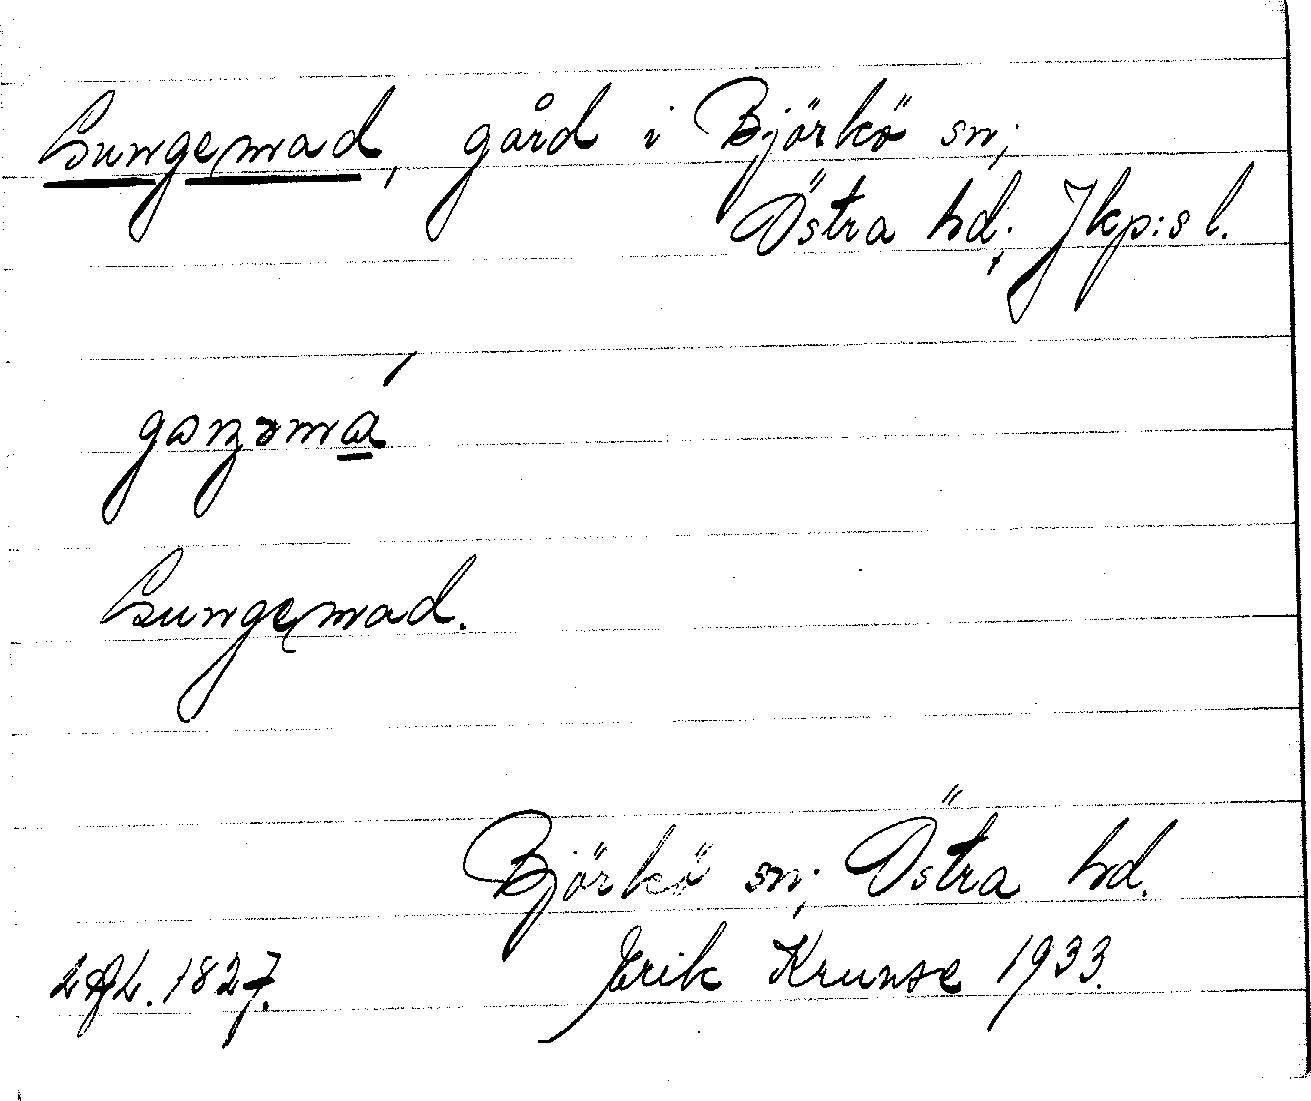 Gungemad, gård i Björkö sn;
Östra hd; Jkp:s l.
gɔŋəmá
Gungemad.
Björkö sn; Östra hd.
1827. Erik Krunse 1933.